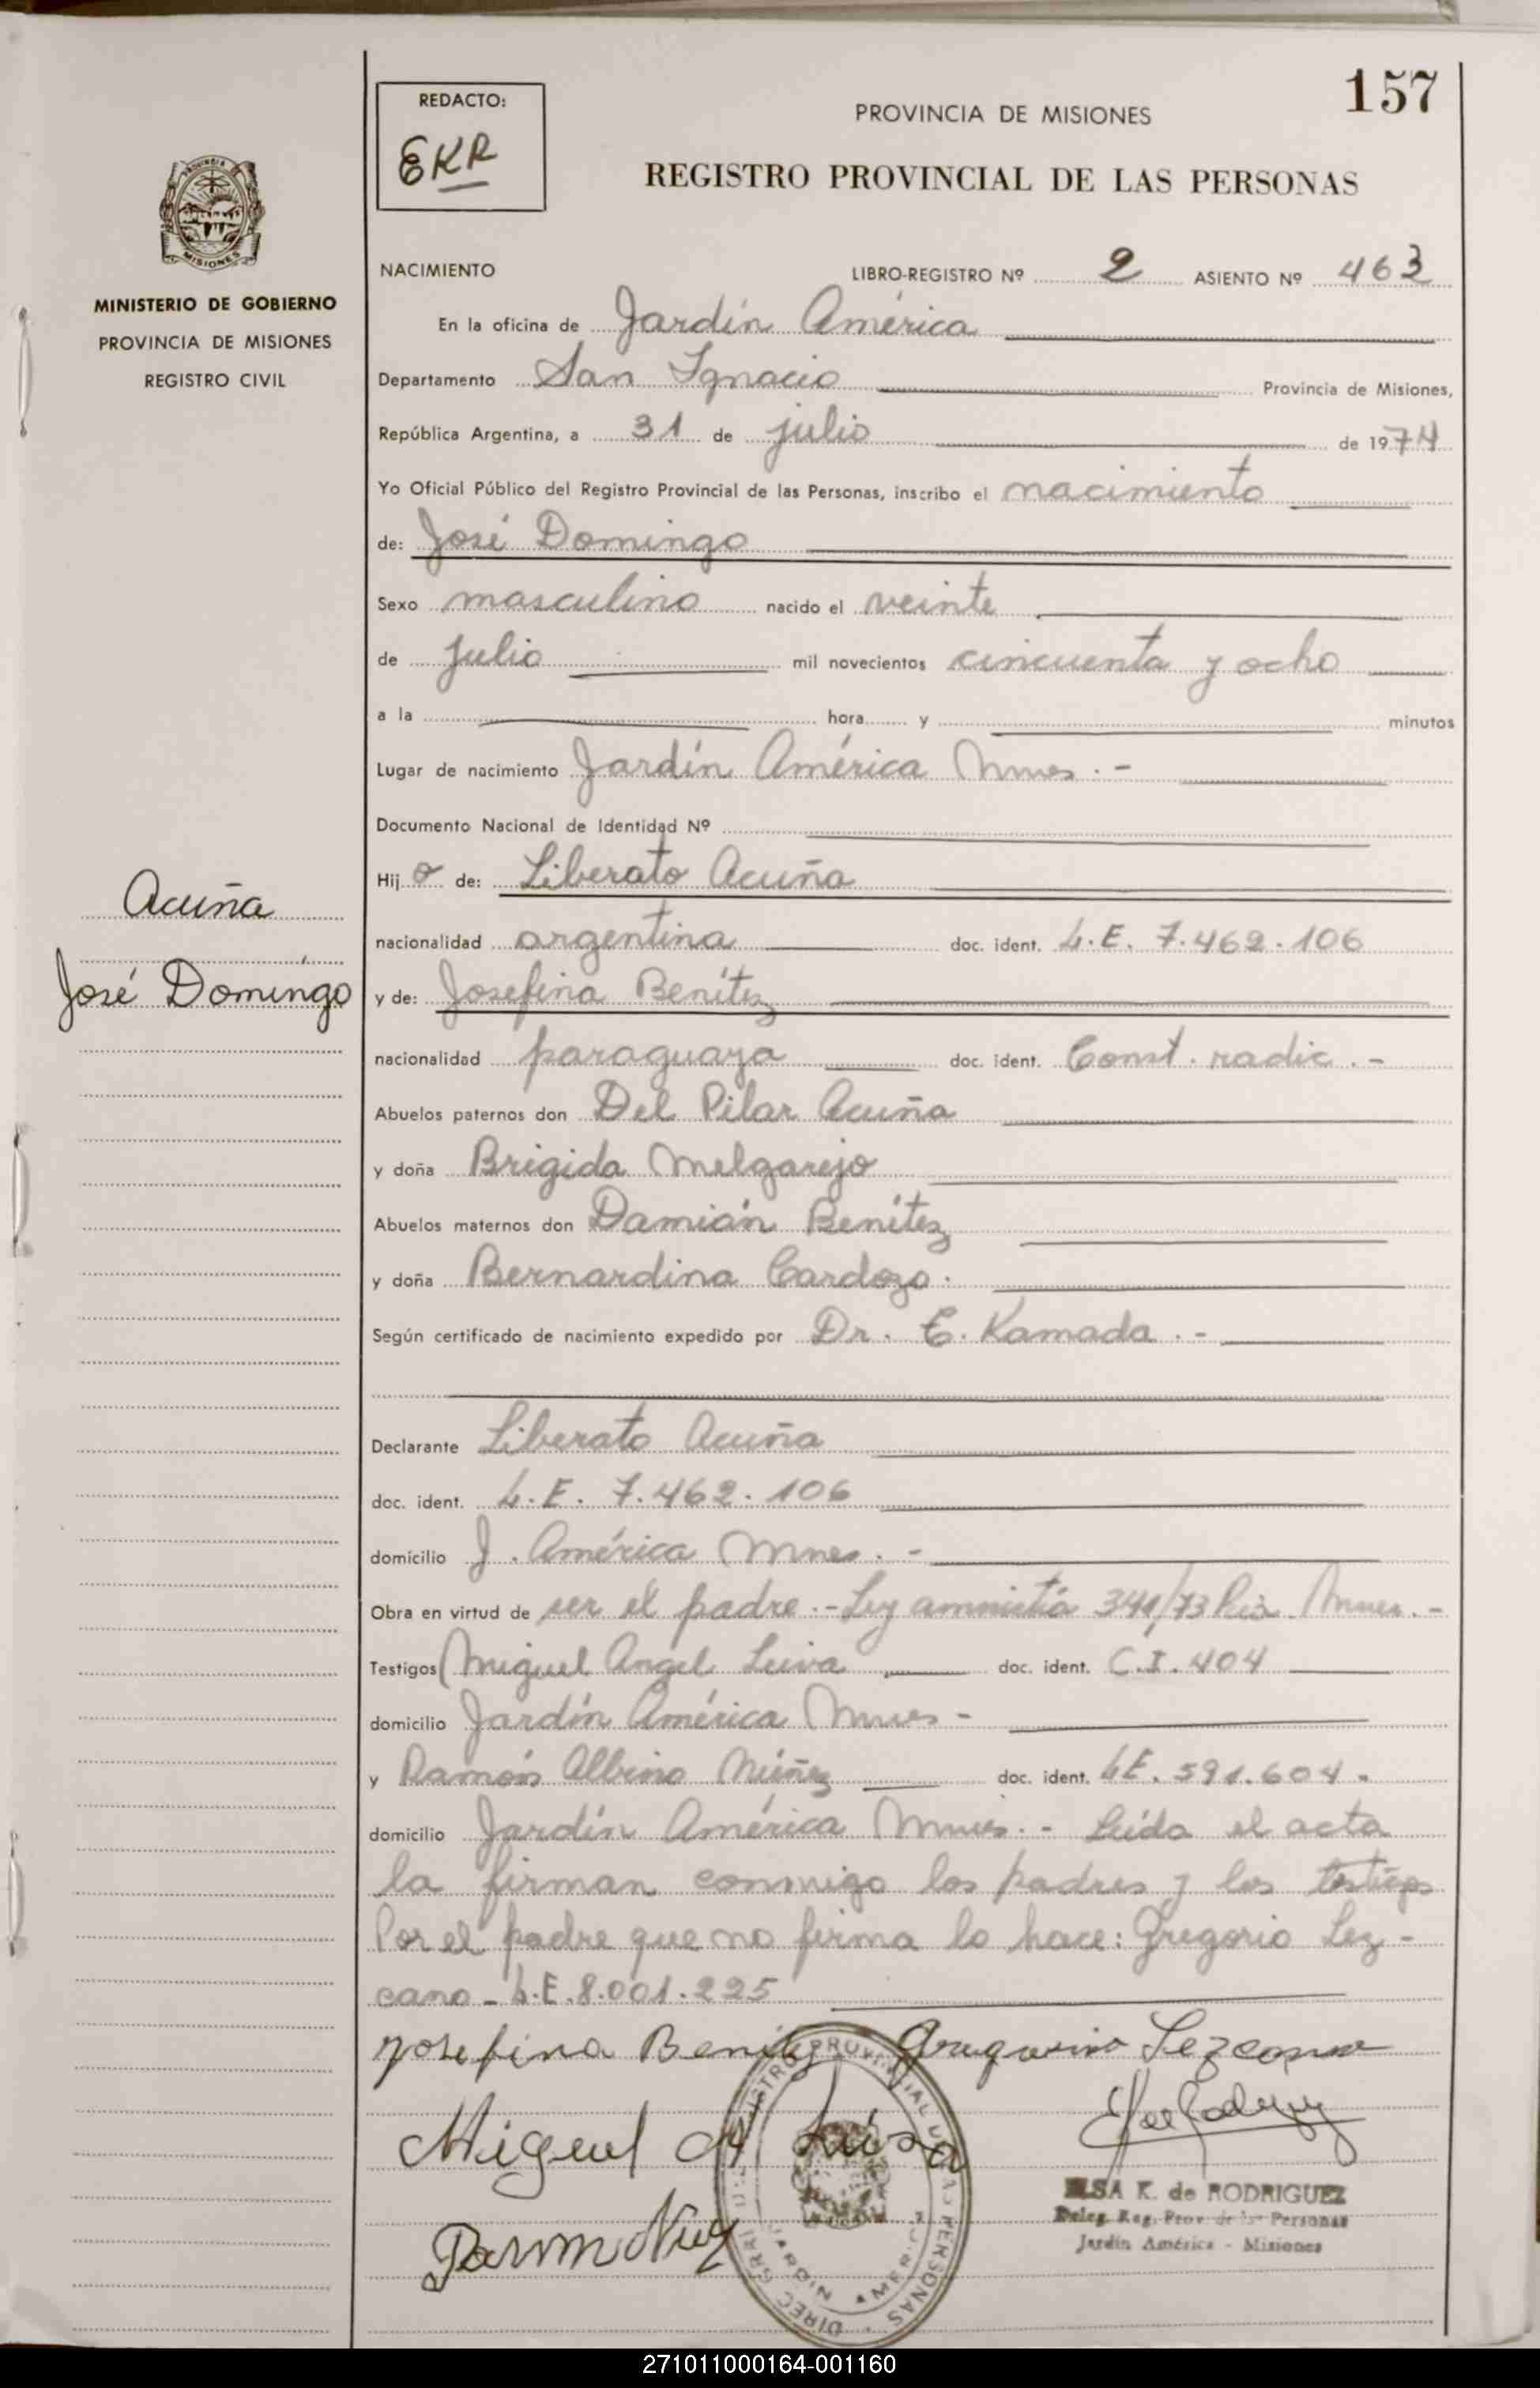 157
REDACTO:
EKR
PROVINCIA DE MISIONES
REGISTRO PROVINCIAL DE LAS PERSONAS
MISIONES
MINISTERIO DE GOBIERNO
PROVINCIA DE MISIONES
REGISTRO CIVIL
NACIMIENTO LIBRO-REGISTRO Nº 2 ASIENTO Nº 463
En la oficina de Jardín América
Departamento San Ignacio Provincia de Misiones,
República Argentina, a 31 de julio de 1974
Yo Oficial Público del Registro Provincial de las Personas, inscribo el nacimiento
de: José Domingo
Sexo masculino nacido el veinte
de julio mil novecientos cincuenta y ocho
a la hora y minutos
Lugar de nacimiento Jardín América Mnes.-
Documento Nacional de Identidad Nº
Hijo de: Liberato Acuña
Acuña
nacionalidad argentina doc. ident. L.E. 7.462.106
José Domingo
y de: Josefina Benítez
nacionalidad paraguaya doc. ident. Const. radic.-
Abuelos paternos don Del Pilar Acuña
y doña Brigida Melgarejo
Abuelos maternos don Damián Benítez
y doña Bernardina Cardozo.
Según certificado de nacimiento expedido por Dr. E. Kamada.-
Declarante Liberato Acuña
doc. ident. L.E. 7.462.106
domicilio J. América Mnes.-
Obra en virtud de ser el padre.- Ley amnistía 341/73 Mnes.-
Testigos Miguel Angel Leiva doc. ident. C.I. 404
domicilio Jardín América Mnes-
y Ramón Albino Núñez doc. ident. LE. 591.604.
domicilio Jardín América Mnes.- Leída el acta
la firman conmigo los padres y los testigos
Por el padre que no firma lo hace: Gregorio Lez-
cano - L.E. 8.001.225
Josefina Benitez Gregorio Lezcano
Miguel A Leiva
ELSA K. de RODRIGUEZ
Deleg. Reg. Prov. de las Personas
Jardín América - Misiones
271011000164-001160